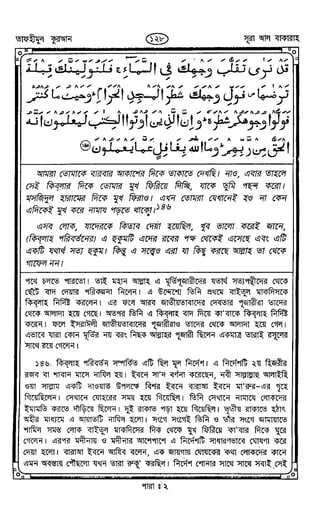 তাফহীমুল কুরআন
১২৮
সূরা আল বাকারাহ
قَدْ نَرٰى تَقَلُّبَ وَجْهِكَ فِى السَّمَآءِ ۚ فَلَنُوَلِّيَنَّكَ قِبْلَةً
تَرْضٰىهَا ۪ فَوَلِّ وَجْهَكَ شَطْرَ الْمَسْجِدِ الْحَرَامِ ؕ وَحَيْثُ مَا كُنْتُمْ
فَوَلُّوْا وُجُوْهَكُمْ شَطْرَهٗ ؕ وَاِنَّ الَّذِيْنَ اُوْتُوا الْكِتٰبَ لَيَعْلَمُوْنَ اَنَّهُ
الْحَقُّ مِنْ رَّبِّهِمْ ؕ وَمَا اللّٰهُ بِغَافِلٍ عَمَّا يَعْمَلُوْنَ
আমরা তোমাকে বারবার আকাশের দিকে তাকাতে দেখছি। নাও, এবার তাহলে
সেই কিব্‌লার দিকে তোমার মুখ ফিরিয়ে দিচ্ছি, যাকে তুমি পছন্দ করো।
মসজিদুল হারামের দিকে মুখ ফিরাও। এখন তোমরা যেখানেই হও না কেন
এদিকেই মুখ করে নামায পড়তে থাকো।১৪৬
এসব লোক, যাদেরকে কিতাব দেয়া হয়েছিল, খুব ভালো করেই জানে,
(কিব্‌লাহ পরিবর্তনের) এ হুকুমটি এদের রবের পক্ষ থেকেই এসেছে এবং এটি
একটি যথার্থ সত্য হুকুম। কিন্তু এ সত্ত্বেও এরা যা কিছু করছে আল্লাহ তা থেকে
গাফেল নন।
পথে চলতে পারতো। তাই মহান আল্লাহ এ মূর্তিপূজারীদের যথার্থ সত্যপন্থীদের থেকে
ছেঁটে বাদ দেয়ার পরিকল্পনা নিলেন। এ উদ্দেশ্যে তিনি প্রথমে বাইতুল মাকদিসকে
কিব্‌লাহ নির্দিষ্ট করলেন। এর ফলে আরব জাতীয়তাবাদের দেবতার পূজারীরা তাদের
থেকে আলাদা হয়ে গেছে। অতপর তিনি এ কিব্‌লাহ বাদ দিয়ে কা'বাকে কিব্‌লাহ নির্দিষ্ট
করেন। ফলে ইসরাঈলী জাতীয়তাবাদের পূজারীরাও তাদের থেকে আলাদা হয়ে গেল।
এভাবে যারা কোন মূর্তির নয় বরং নিছক আল্লাহর পূজারী ছিলেন একমাত্র তারাই রসূলের
সাথে রয়ে গেলেন।
১৪৬. কিব্‌লাহ পরিবর্তন সম্পর্কিত এটি ছিল মূল নির্দেশ। এ নির্দেশটি ২য় হিজরীর
রজব বা শাবান মাসে নাযিল হয়। ইবনে সা'দ বর্ণনা করেছেন, নবী সাল্লাল্লাহু আলাইহি
ওয়া সাল্লাম একটি দাওয়াত উপলক্ষে বিশর ইবনে বারাআ ইবনে মা'রুর-এর গৃহে
গিয়েছিলেন। সেখানে যোহরের সময় হয়ে গিয়েছিল। তিনি সেখানে নামাযে লোকদের
ইমামতি করতে দাঁড়িয়ে ছিলেন। দুই রাকাত পড়া হয়ে গিয়েছিল। তৃতীয় রাকাতে হঠাৎ
অহীর মাধ্যমে এ আয়াতটি নাযিল হলো। সংগে সংগেই তিনি ও তাঁর সংগে জামায়াতে
শামিল সমস্ত লোক বাইতুল মাকদিসের দিক থেকে মুখ ফিরিয়ে কা'বার দিকে ঘুরে
গেলেন। এরপর মদীনায় ও মদীনার আশেপাশে এ নির্দেশটি সাধারণভাবে ঘোষণা করে
দেয়া হলো। বারাআ ইবনে আযিব বলেন, এক জায়গায় ঘোষকের কথা লোকদের কানে
এমন অবস্থায় পৌঁছলো যখন তারা রুকূ' করছিল। নির্দেশ শোনার সাথে সাথে সবাই সেই
পারা : ২